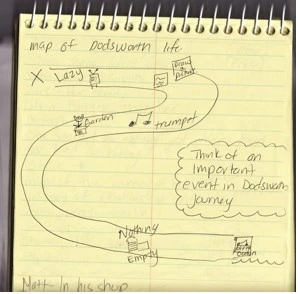 map of Dodsworth life.
X Lazy
Draw a
Garden
trumpet
Think of an
important
event in Dodsworth
journey
Nothing
Empty
in his shop